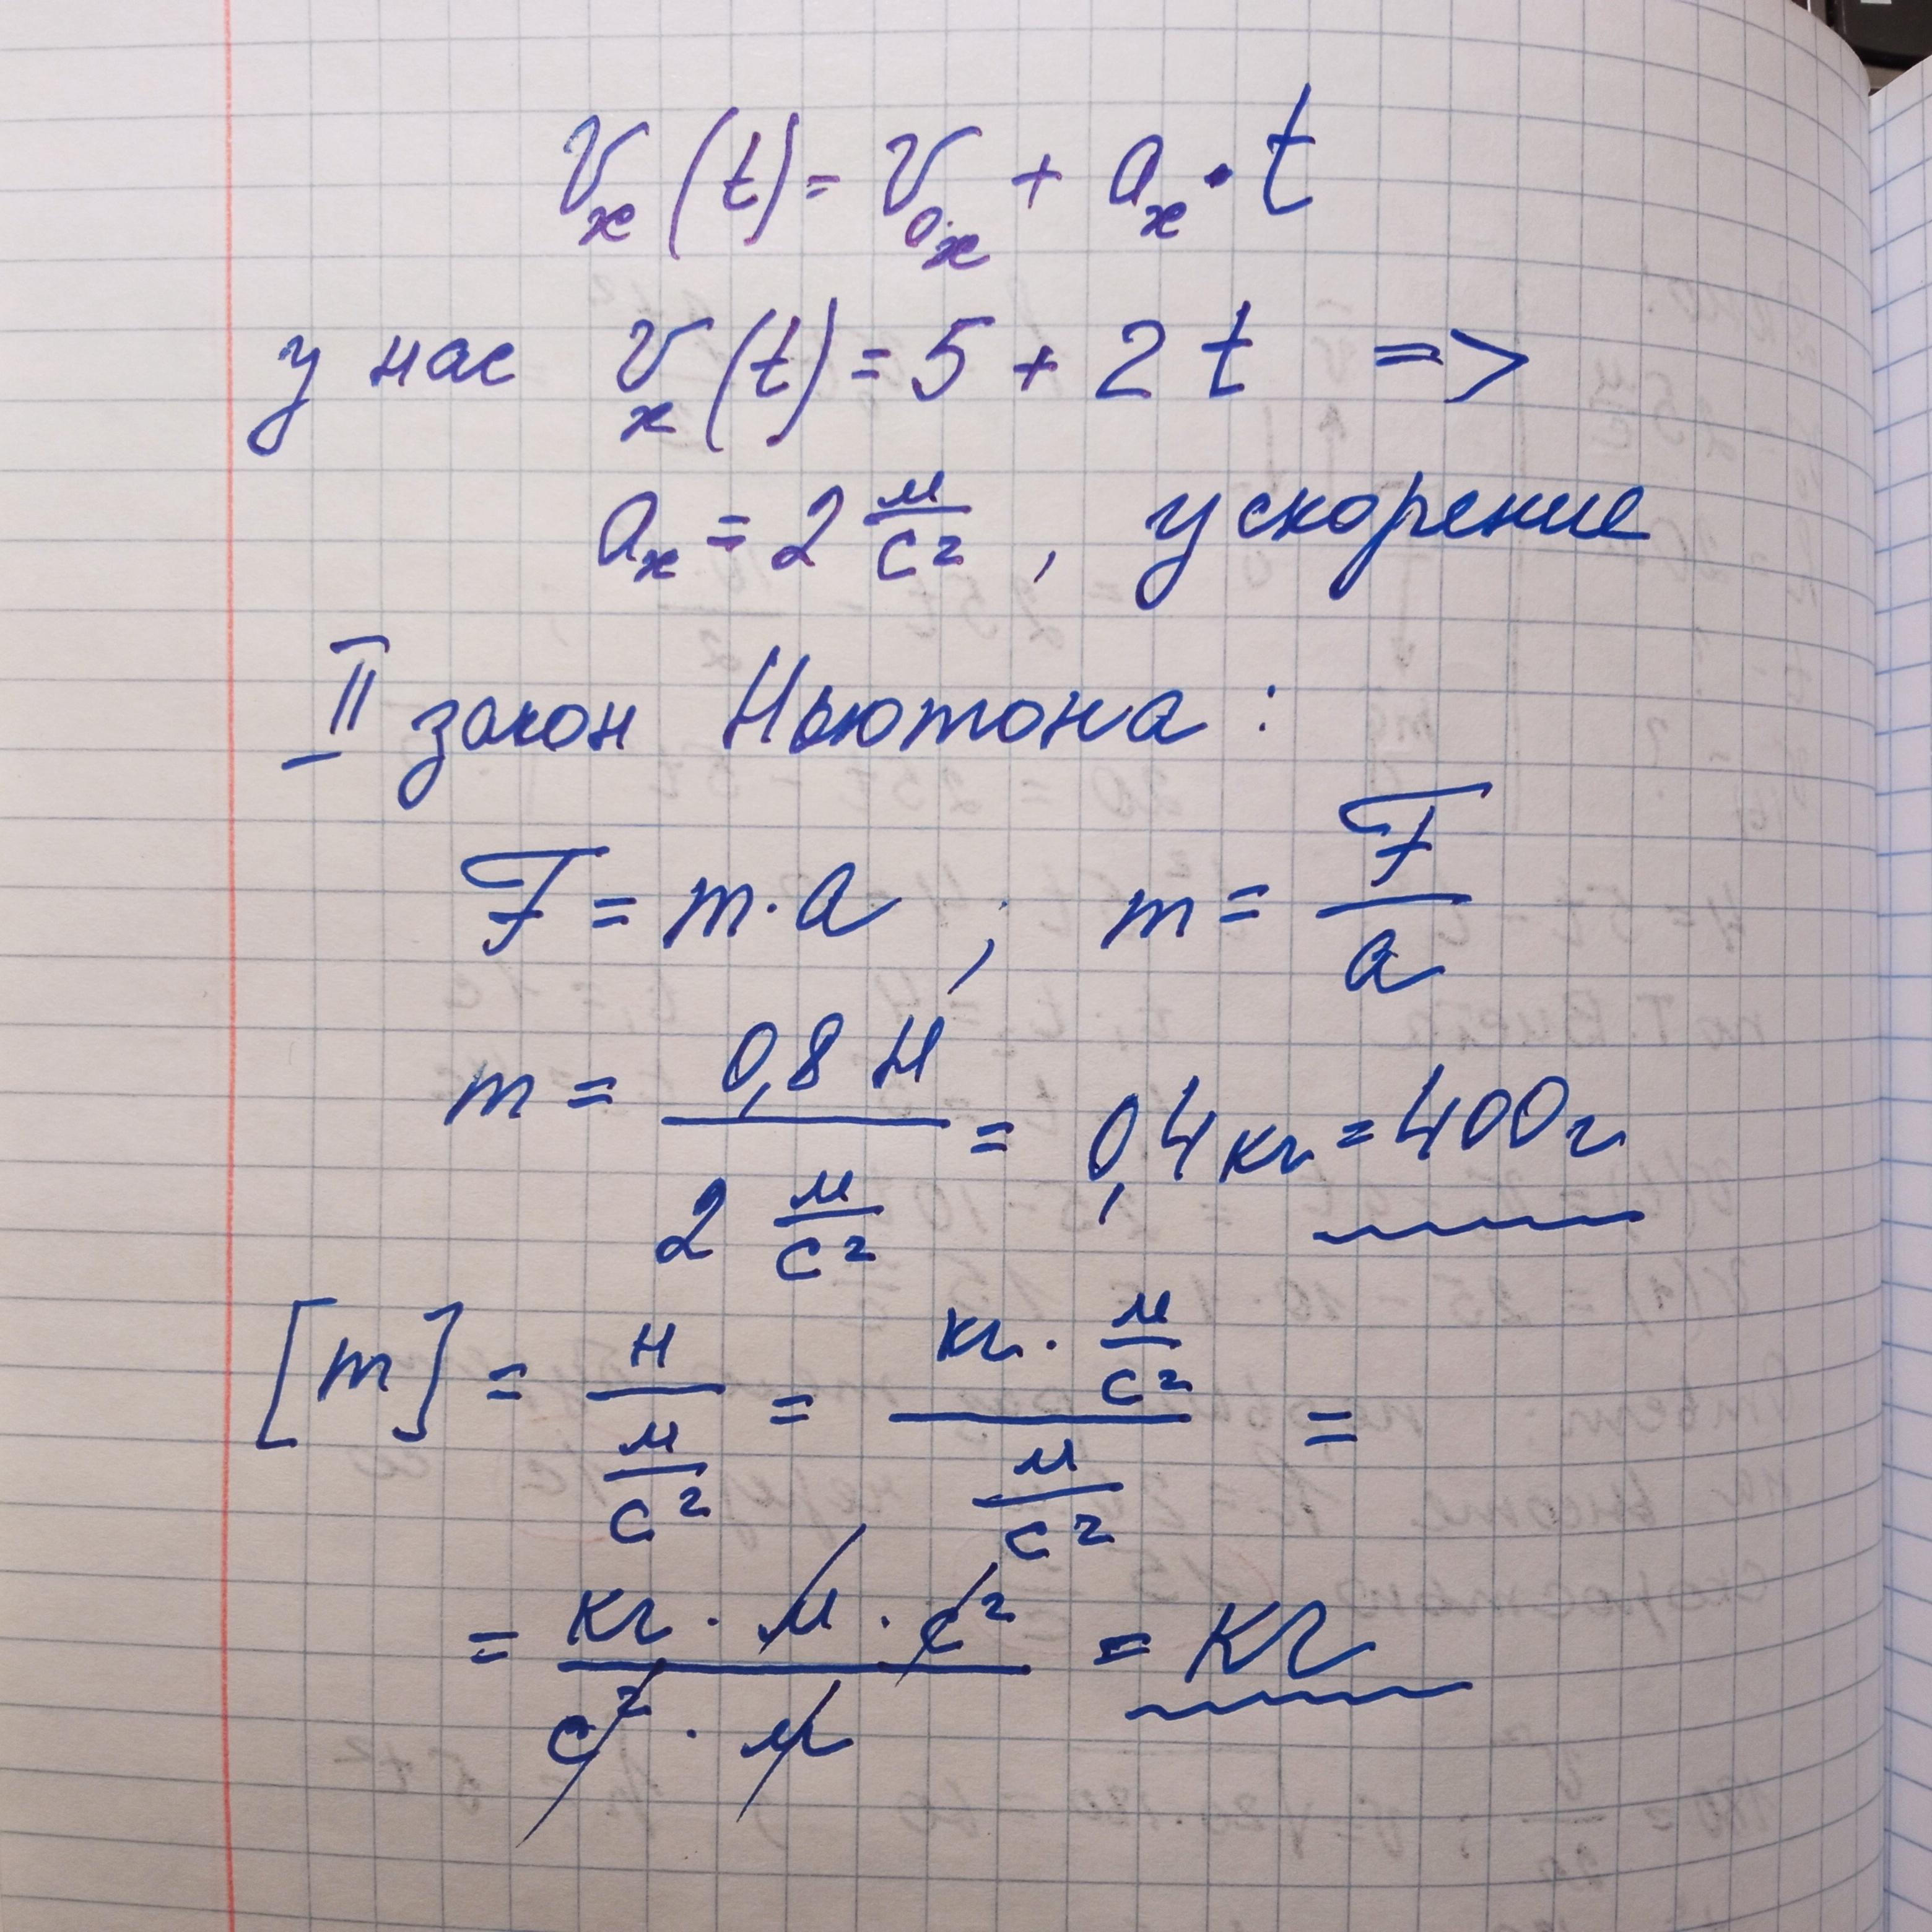 Vₓ(t) = V₀ₓ + aₓ · t
у нас Vₓ(t) = 5 + 2t =>
aₓ = 2 м/с², ускорение
II закон Ньютона:
F = m · a ; m = F/a
m = 0,8 Н / 2 м/с² = 0,4 кг = 400 г
[m] = Н / м/с² = кг · м/с² / м/с² =
= кг · м · с² / с² · м = кг